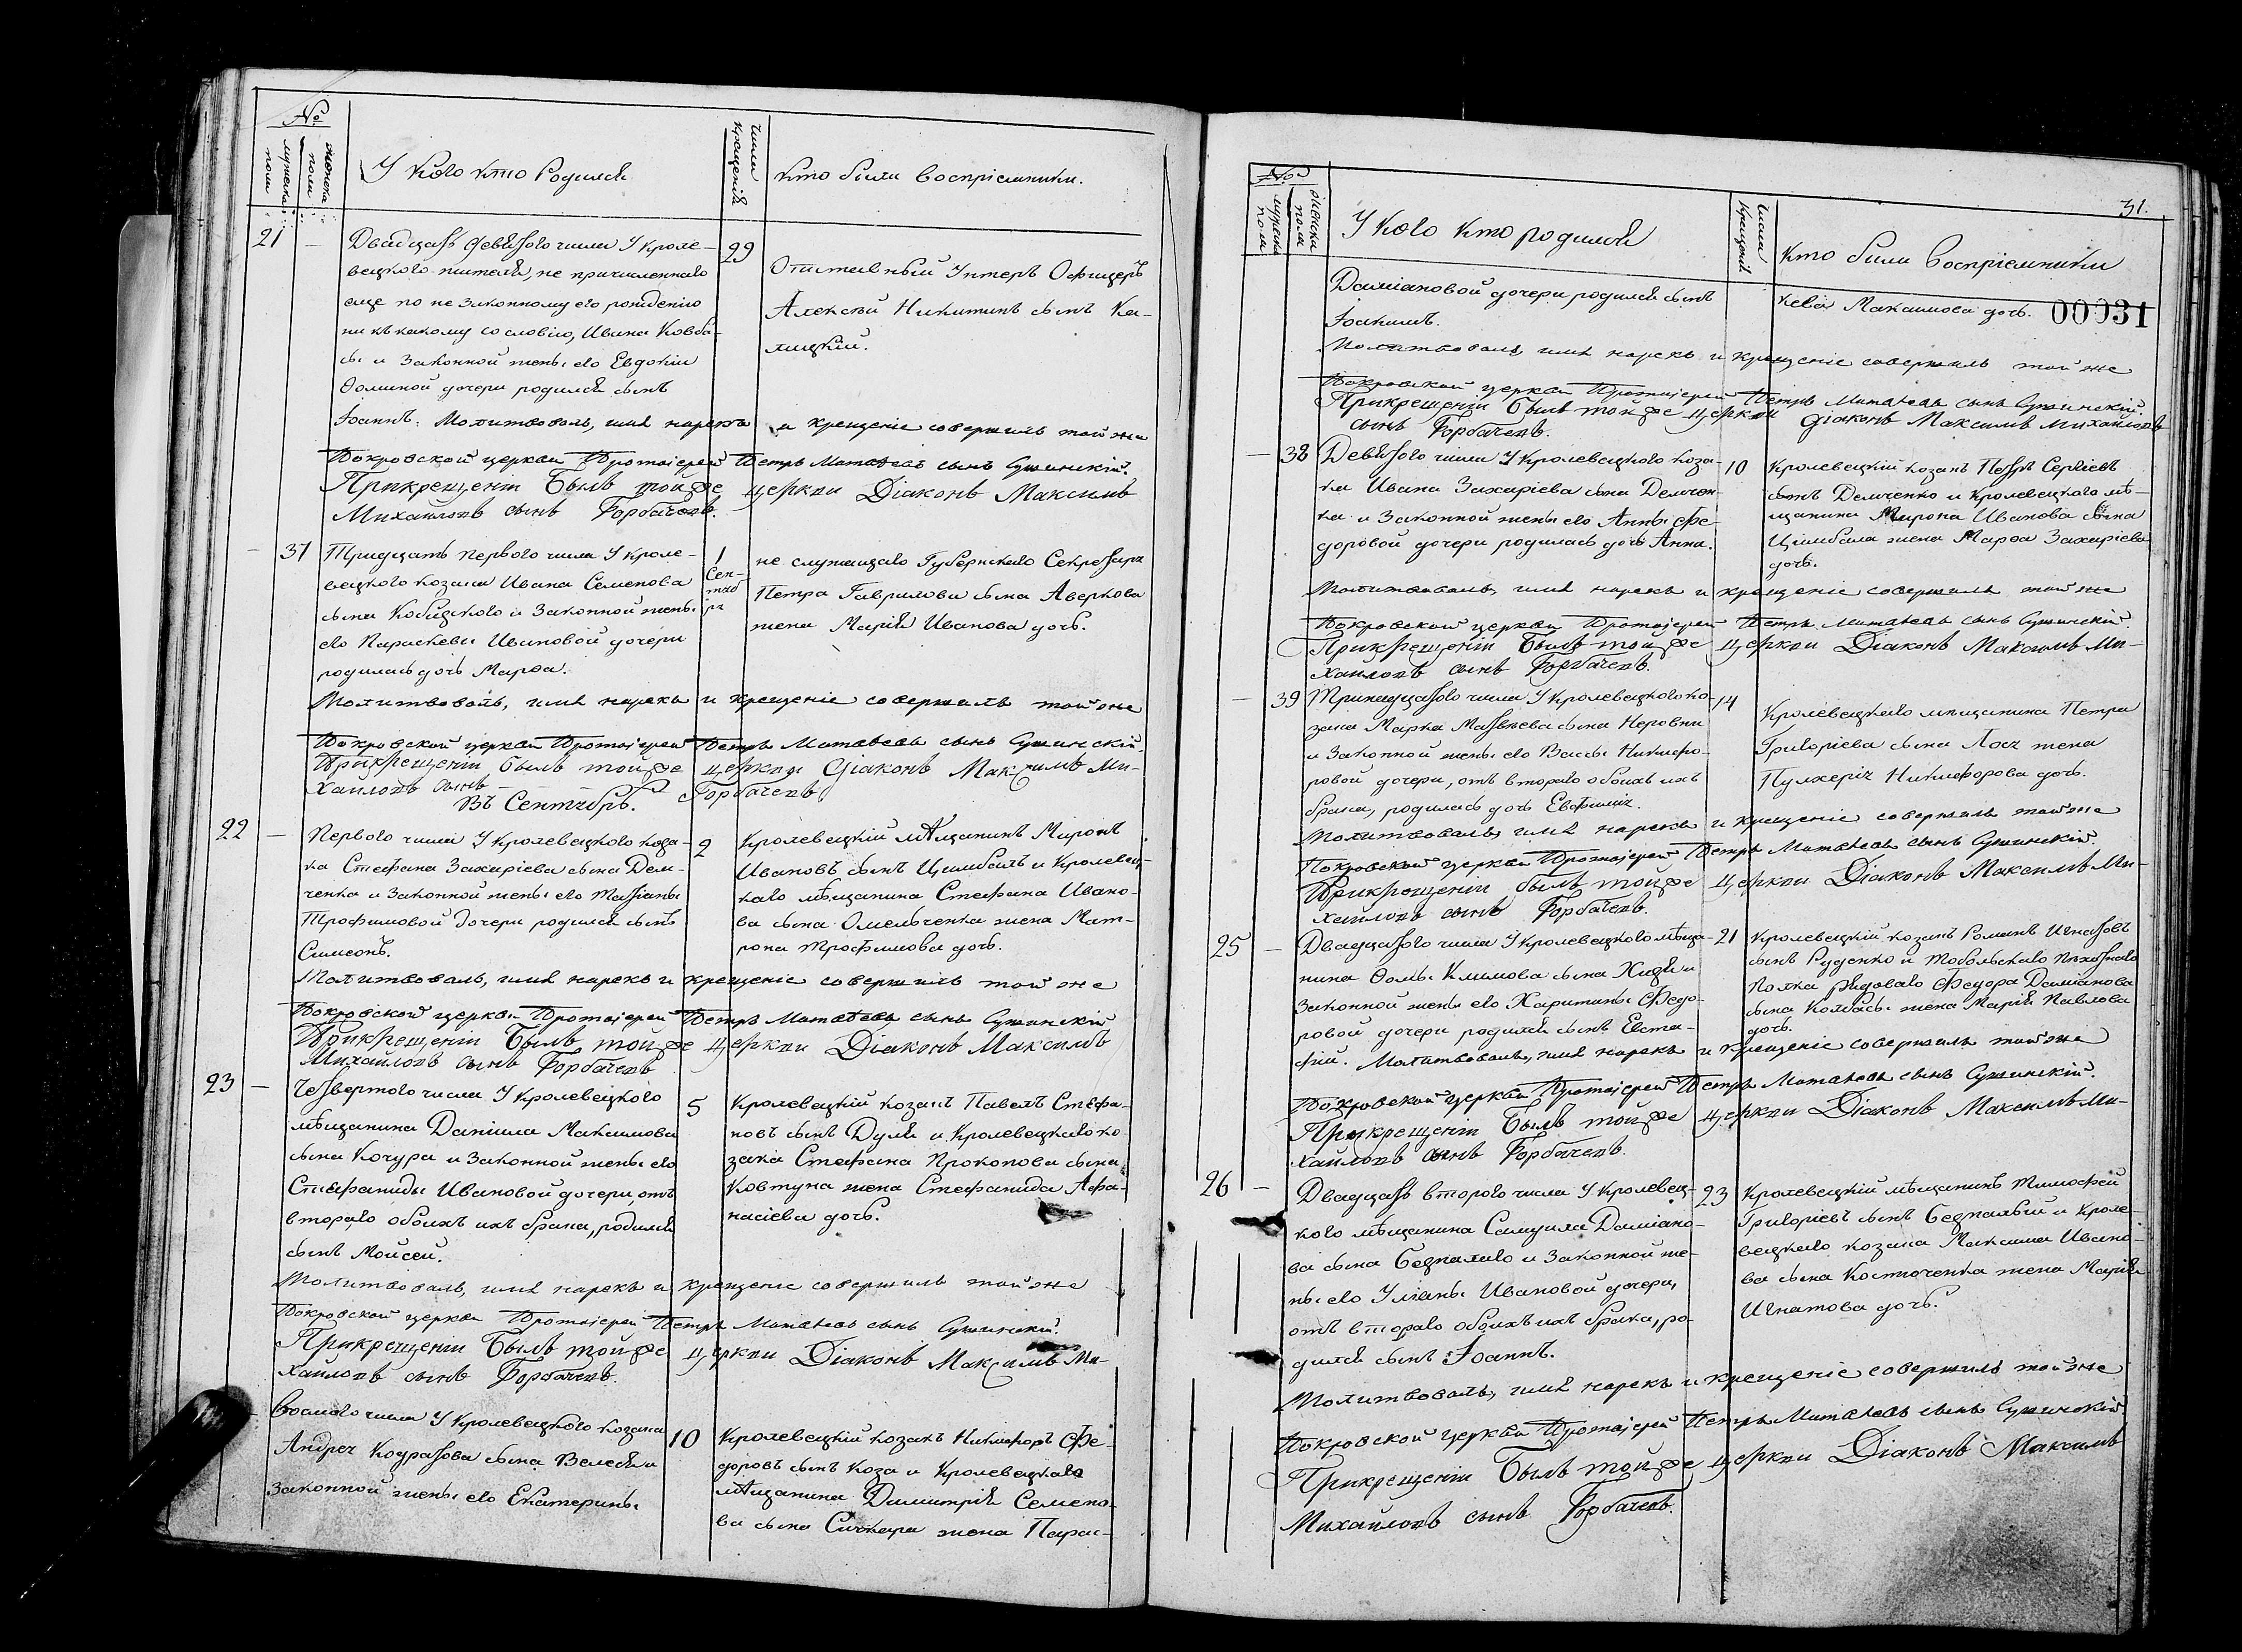 №
женска
пола
мужеска
пола
У кого кто родился
число
крещенія
кто были воспріемники.
21 — Двадцать девятого числа У кроле-
вецкого жителя, не причисленнаго
еще по не законному его рожденію
ни къ какому сословію, Ивана Ковба-
сы и законной жены его Евдокіи
Ѳоминой дочери родился сынъ
29
Отставный Унтеръ Офицеръ
Алексѣй Никитинъ сынъ Ка-
лицкій.
Іоаннъ. Молитвовалъ, имя нарекъ и крещеніе совершилъ той же
Покровской церкви Протоіерей Петръ Матвѣевъ сынъ Сушинскій.
При крещеніи былъ той же церкви Діаконъ Максимъ
Михайловъ сынъ Горбачевъ.
— 37 Тридцать первого числа У кроле-
вецкого козака Ивана Семенова
сына Кобицкого и законной жены
его Параскевы Ивановой дочери
родилась дочь Марѳа.
1
Сен-
тяб
ря
не служащаго Губернскаго Секретаря
Петра Гаврилова сына Аверкова
жена Марія Иванова дочь.
Молитвовалъ, имя нарекъ и крещеніе совершилъ той же
Покровской церкви Протоіерей Петръ Матвѣевъ сынъ Сушинскій.
При крещеніи былъ той же церкви Діаконъ Максимъ Ми-
хайловъ сынъ Горбачевъ.
Въ Сентябрѣ.
22 — Первого числа У Кролевецкого коза-
ка Стефана Захаріева сына Дем-
ченка и законной жены его Татіаны
Трофимовой дочери родился сынъ
Симеонъ.
2
Кролевецкій мѣщанинъ Миронъ
Ивановъ сынъ Цимбалъ и Кролевец-
каго мѣщанина Стефана Ивано-
ва сына Омельченка жена Мат-
рона Трофимова дочь.
Молитвовалъ, имя нарекъ и крещеніе совершилъ той же
Покровской церкви Протоіерей Петръ Матвѣевъ сынъ Сушинскій
При крещеніи былъ той же церкви Діаконъ Максимъ
Михайловъ сынъ Горбачевъ
23 — Четвертого числа У Кролевецкого
мѣщанина Даніила Максимова
сына Кочура и законной жены его
Стефаниды Ивановой дочери, отъ
второго обоихъ ихъ брака, родился
сынъ Моисей.
5
Кролевецкій козакъ Павелъ Стефа-
новъ сынъ Дуля и Кролевецкаго ко-
зака Стефана Прокопова сына
Ковтуна жена Стефанида Афа-
насіева дочь.
Молитвовалъ, имя нарекъ и крещеніе совершилъ той же
Покровской церкви Протоіерей Петръ Матвѣевъ сынъ Сушинскій.
При крещеніи былъ той же церкви Діаконъ Максимъ Ми-
хайловъ сынъ Горбачевъ.
Восмого числа У Кролевецкого козака
Андрея Кодратова сына Велебя и
законной жены его Екатерины
10
Кролевецкій козакъ Никифоръ Фе-
доровъ сынъ Коза и Кролевецкаго
мѣщанина Димитрія Семено-
ва сына Сичкаря жена Парас-
31.
№
женска
пола
мужеска
пола
У кого кто родился
число
крещенія
кто были воспріемники
Даміановой дочери родился сынъ
Іоакимъ.
кева Максимова дочь.
00031
Молитвовалъ, имя нарекъ и крещеніе совершилъ той же
Покровской церкви Протоіерей Петръ Матвѣевъ сынъ Сушинскій.
При крещеніи былъ той же церкви Діаконъ Максимъ Михайловъ
сынъ Горбачевъ.
— 38 Девятого числа У Кролевецкого коза-
ка Ивана Захаріева сына Демчен-
ка и законной жены его Анны Фе-
доровой дочери родилась дочь Анна.
10
Кролевецкій козакъ Петръ Сергіевъ
сынъ Демченко и Кролевецкого мѣ-
щанина Мирона Иванова сына
Цимбала жена Марѳа Захаріева
дочь.
Молитвовалъ, имя нарекъ и крещеніе совершилъ той же
Покровской церкви Протоіерей Петръ Матвѣевъ сынъ Сушинскій.
При крещеніи былъ той же церкви Діаконъ Максимъ Ми-
хайловъ сынъ Горбачевъ.
— 39 Тринадцатого числа У Кролевецкого ко-
зака Марка Матвѣева сына Неровни
и законной жены его Вассы Никифо-
ровой дочери, отъ второго обоихъ ихъ
брака, родилась дочь Евфимия.
14
Кролевецкаго мѣщанина Петра
Григоріева сына Лося жена
Пулхерія Никифорова дочь.
Молитвовалъ, имя нарекъ и крещеніе совершилъ той же
Покровской церкви Протоіерей Петръ Матвѣевъ сынъ Сушинскій.
При крещеніи былъ той же церкви Діаконъ Максимъ Ми-
хайловъ сынъ Горбачевъ.
25 — Двадцатого числа У Кролевецкого мѣща-
нина Ѳомы Климова сына Хидя и
законной жены его Харитины Федо-
ровой дочери родился сынъ Евста-
21
Кролевецкій козакъ Романъ Игнатовъ
сынъ Руденко и Тобольскаго пѣхотнаго
полка рядоваго Федора Даміанова
сына Колбасы жена Марія Павлова
дочь.
фій. Молитвовалъ, имя нарекъ и крещеніе совершилъ той же
Покровской церкви Протоіерей Петръ Матвѣевъ сынъ Сушинскій.
При крещеніи былъ той же церкви Діаконъ Максимъ Ми-
хайловъ сынъ Горбачевъ.
26 — Двадцать второго числа У Кролевец-
кого мѣщанина Самуила Даміано-
ва сына Беднялаго и законной же-
ны его Уліаны Ивановой дочери,
отъ второго обоихъ ихъ брака, ро-
дился сынъ Іоаннъ.
23
Кролевецкій мѣщанинъ Тимофей
Григоріевъ сынъ Беднялый и Кроле-
вецкаго козака Максима Ивано-
ва сына Костюченка жена Марія
Игнатова дочь.
Молитвовалъ, имя нарекъ и крещеніе совершилъ той же
Покровской церкви Протоіерей Петръ Матвѣевъ сынъ Сушинскій
При крещеніи былъ той же церкви Діаконъ Максимъ
Михайловъ сынъ Горбачевъ.